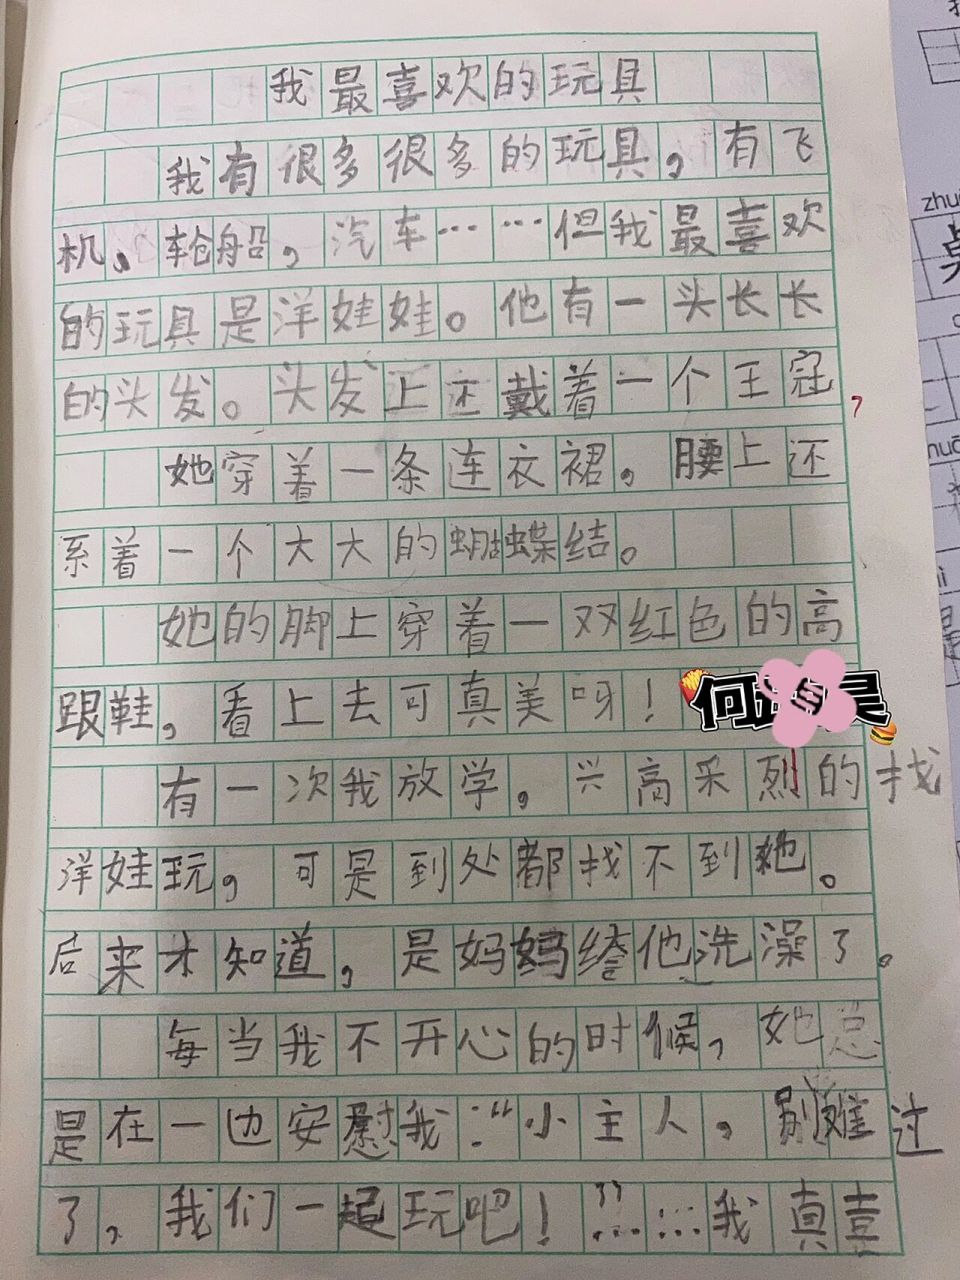 我最喜欢的玩具
我有很多很多的玩具，有飞
机，轮船，汽车……但我最喜欢
的玩具是洋娃娃。他有一头长长
的头发。头发上还戴着一个王冠，
她穿着一条连衣裙，腰上还
系着一个大大的蝴蝶结。
她的脚上穿着一双红色的高
跟鞋，看上去可真美呀！
何
昊
有一次我放学，兴高采烈的找
洋娃玩，可是到处都找不到她。
后来才知道，是妈妈给他洗澡了。
每当我不开心的时候，她总
是在一边安慰我：“小主人，别难过
了，我们一起玩吧！”……我真喜
zhu